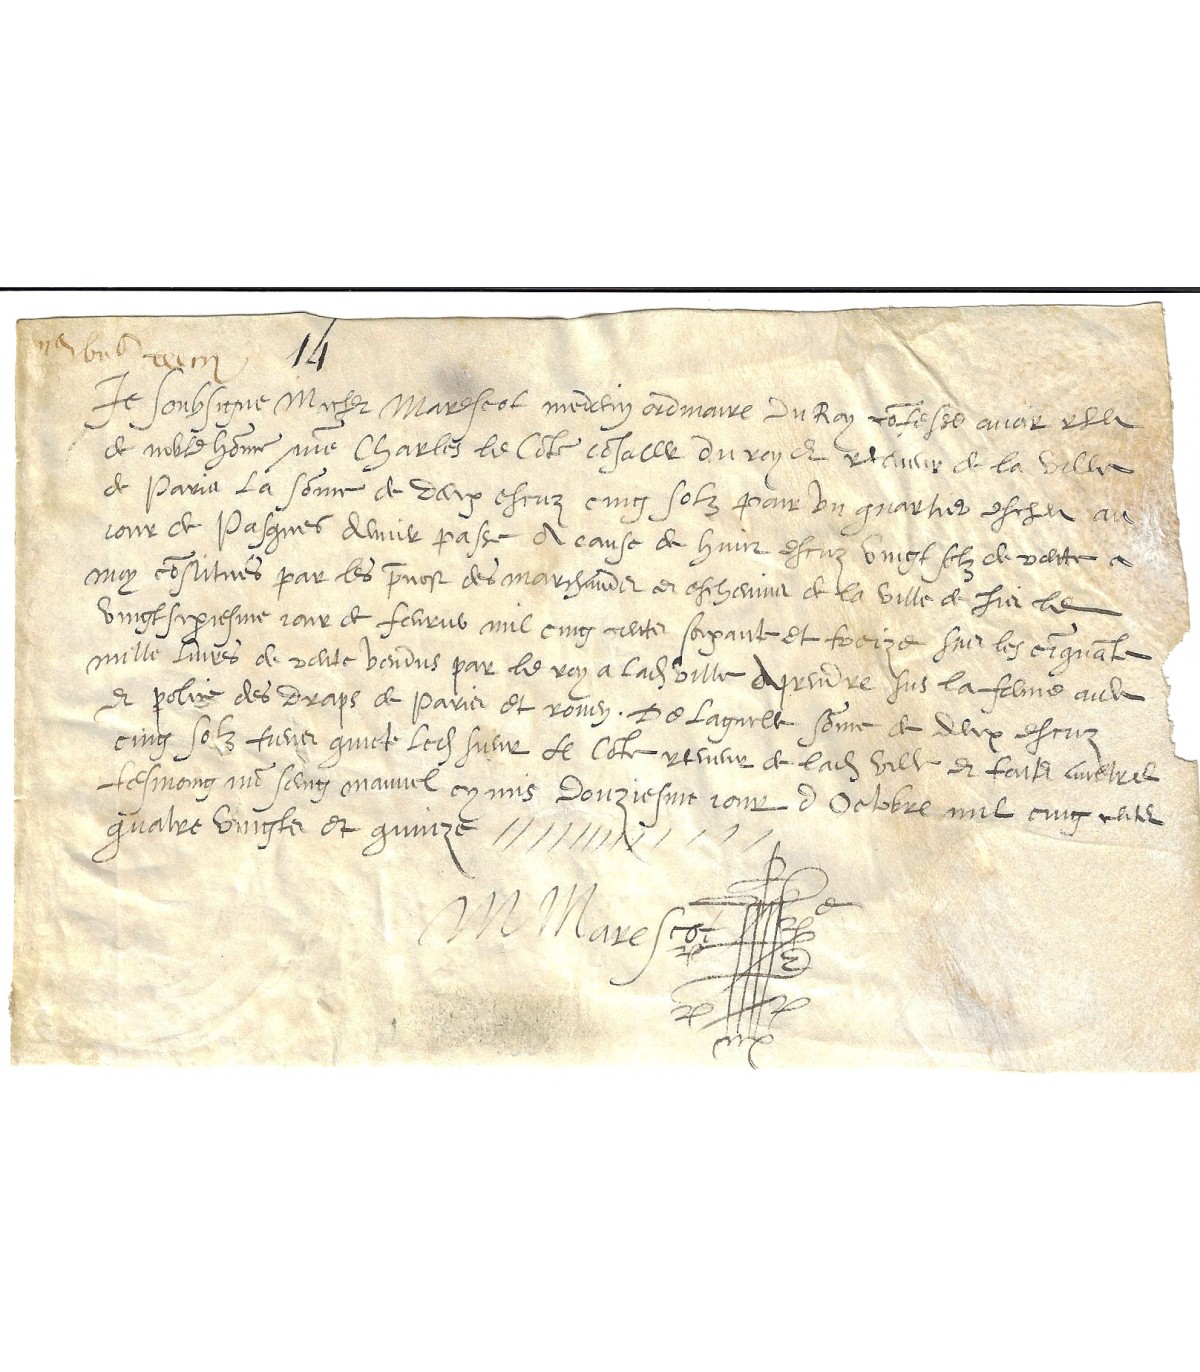 14
Je soubsigne Michel Marescot medecin ordinaire du Roy confesse avoir receu
de noble homme me Charles le Conte conseiller du roy et receveur de la ville
de Paris la somme de deux escuz cinq solz pour un quartier escheu au
jour de Pasques dernier passe A cause de huit escuz vingt solz de rente a
moy constitues par les prevost des marchandz et eschevins de la ville de Paris le
vingtsixiesme jour de fevrier mil cinq cents soixante et treize sur les cinquante
mille livres de rente vendus par le roy a ladicte ville A prendre sus la ferme
et police des draps de Paris et rouen. De laquelle somme de deux escuz
cinq solz quicte ledict sieur le Conte receveur de ladicte ville et
tesmoing mon seing manuel cy mis douziesme jour d Octobre mil cinq cents
quatre vingtz et quinze
M Marescot